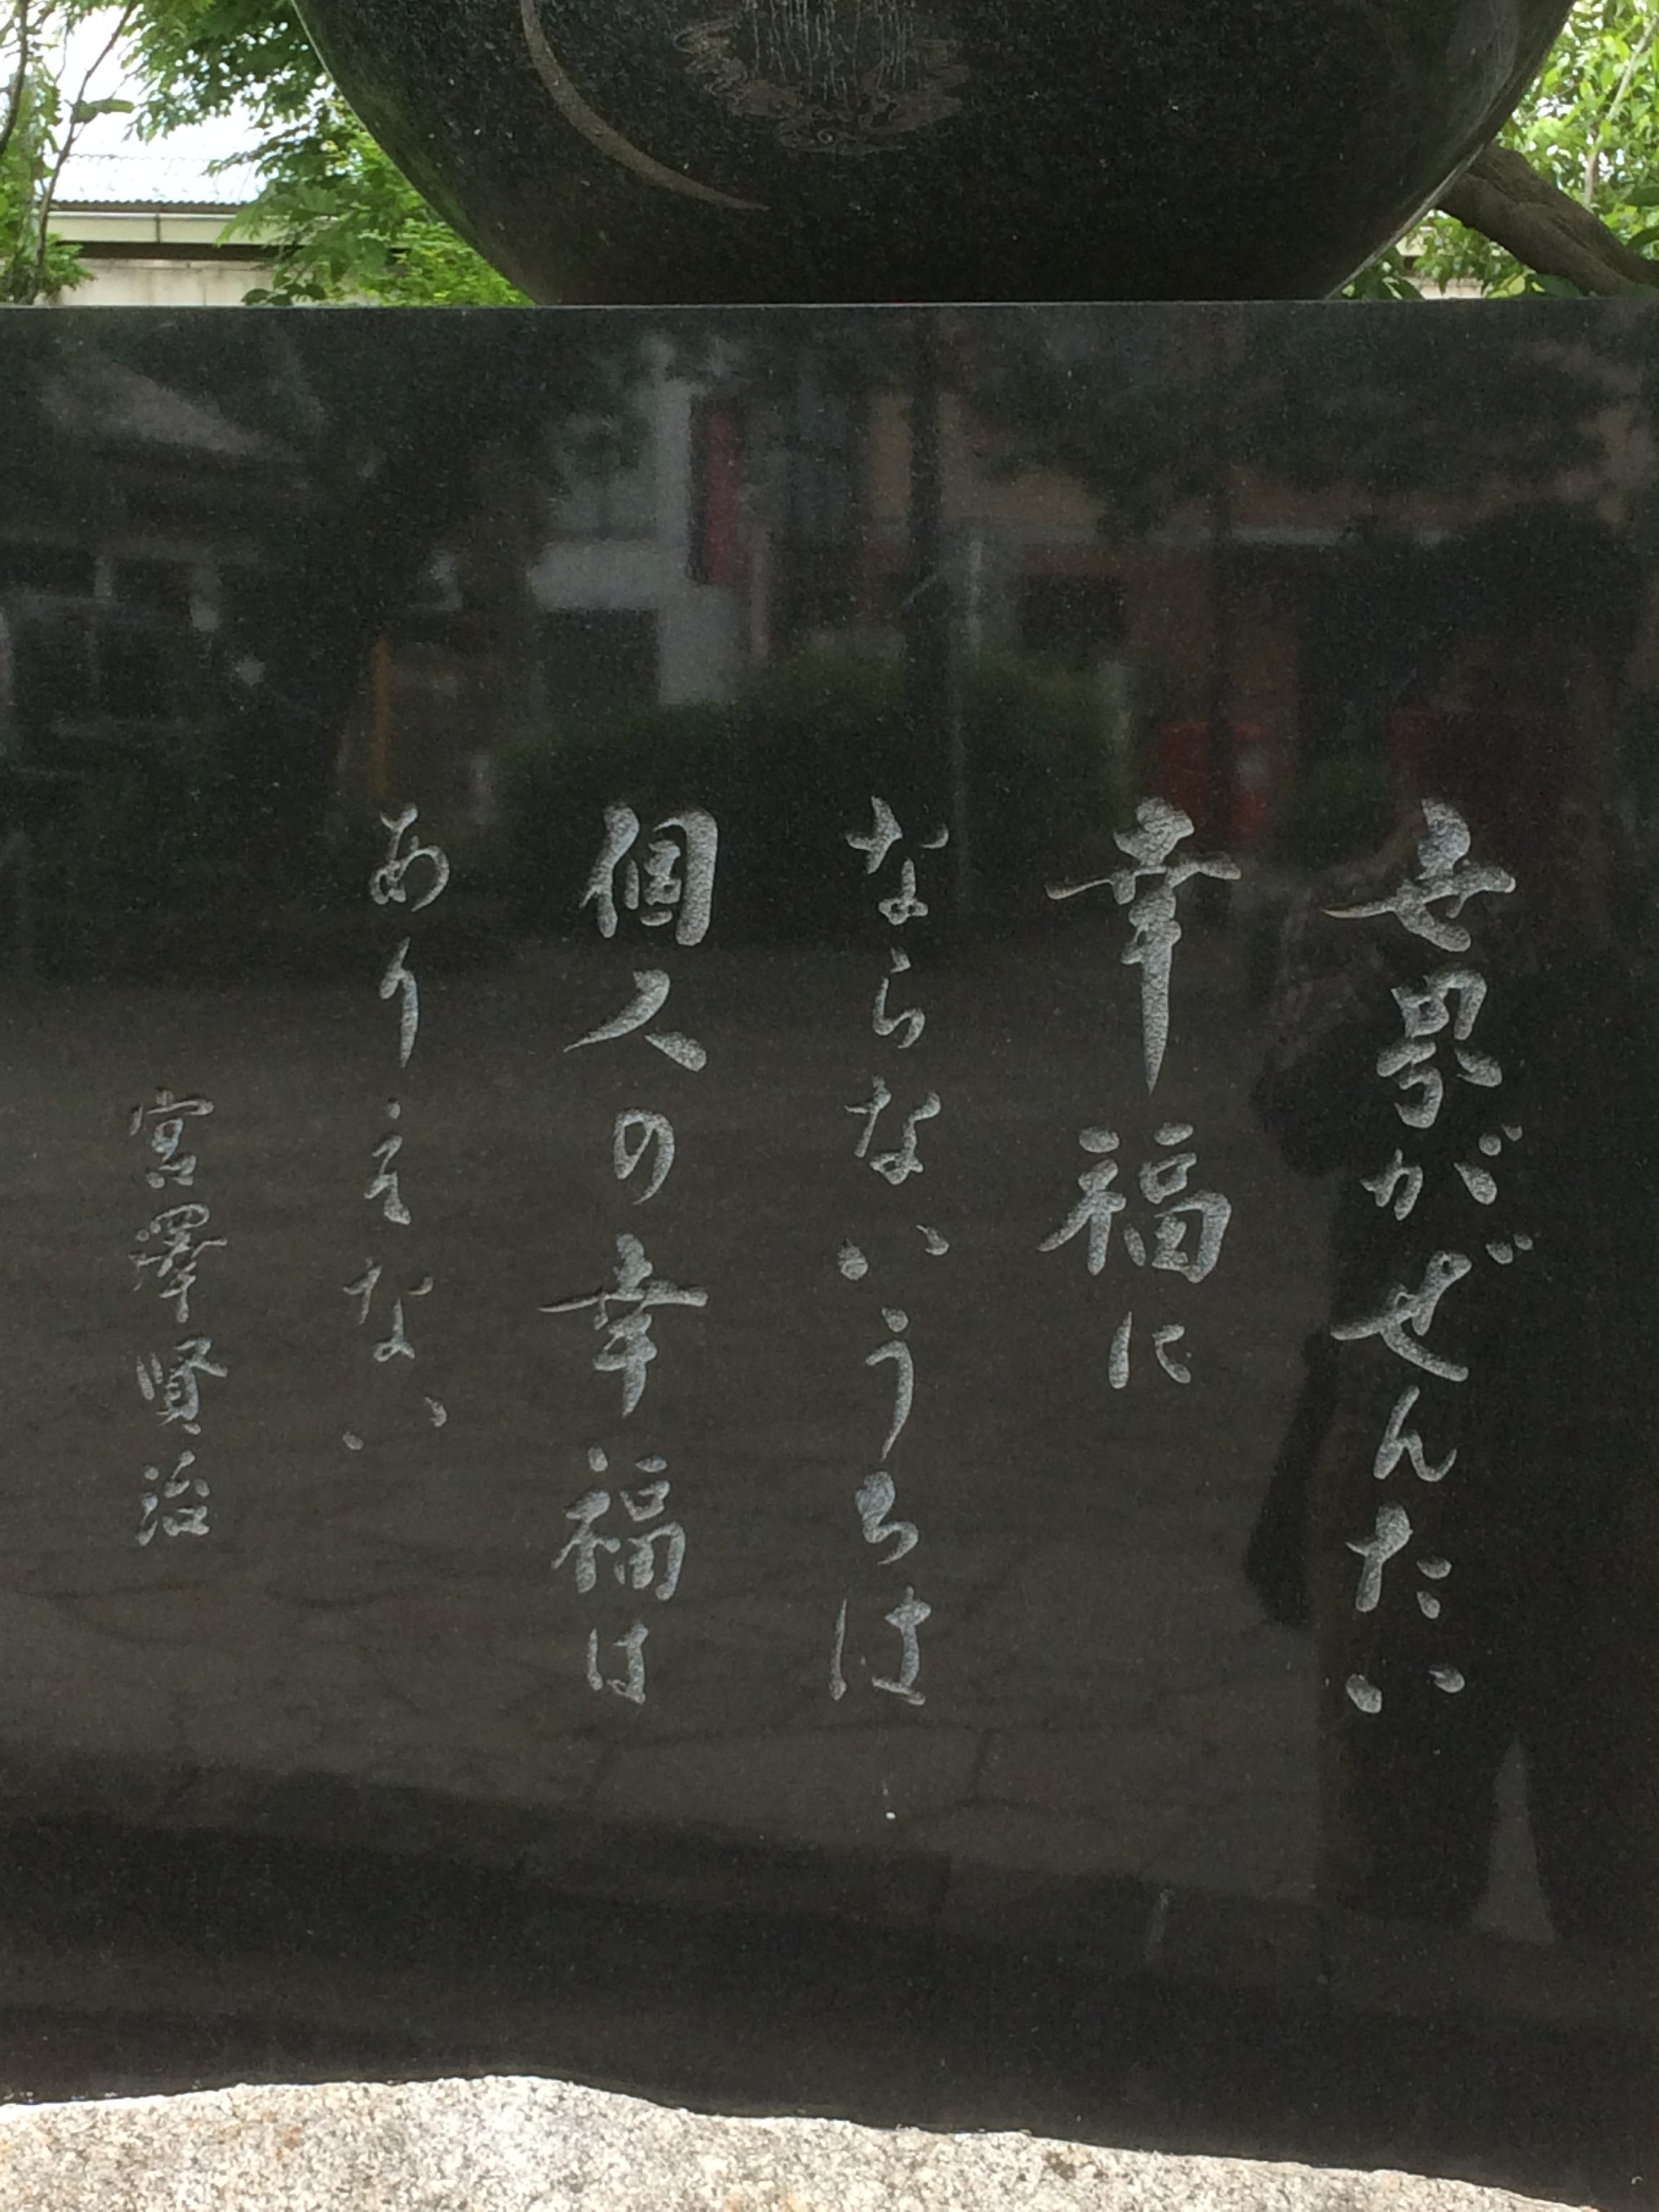 世界がぜんたい
幸福に
ならないうちは
個人の幸福は
ありえない
宮澤賢治